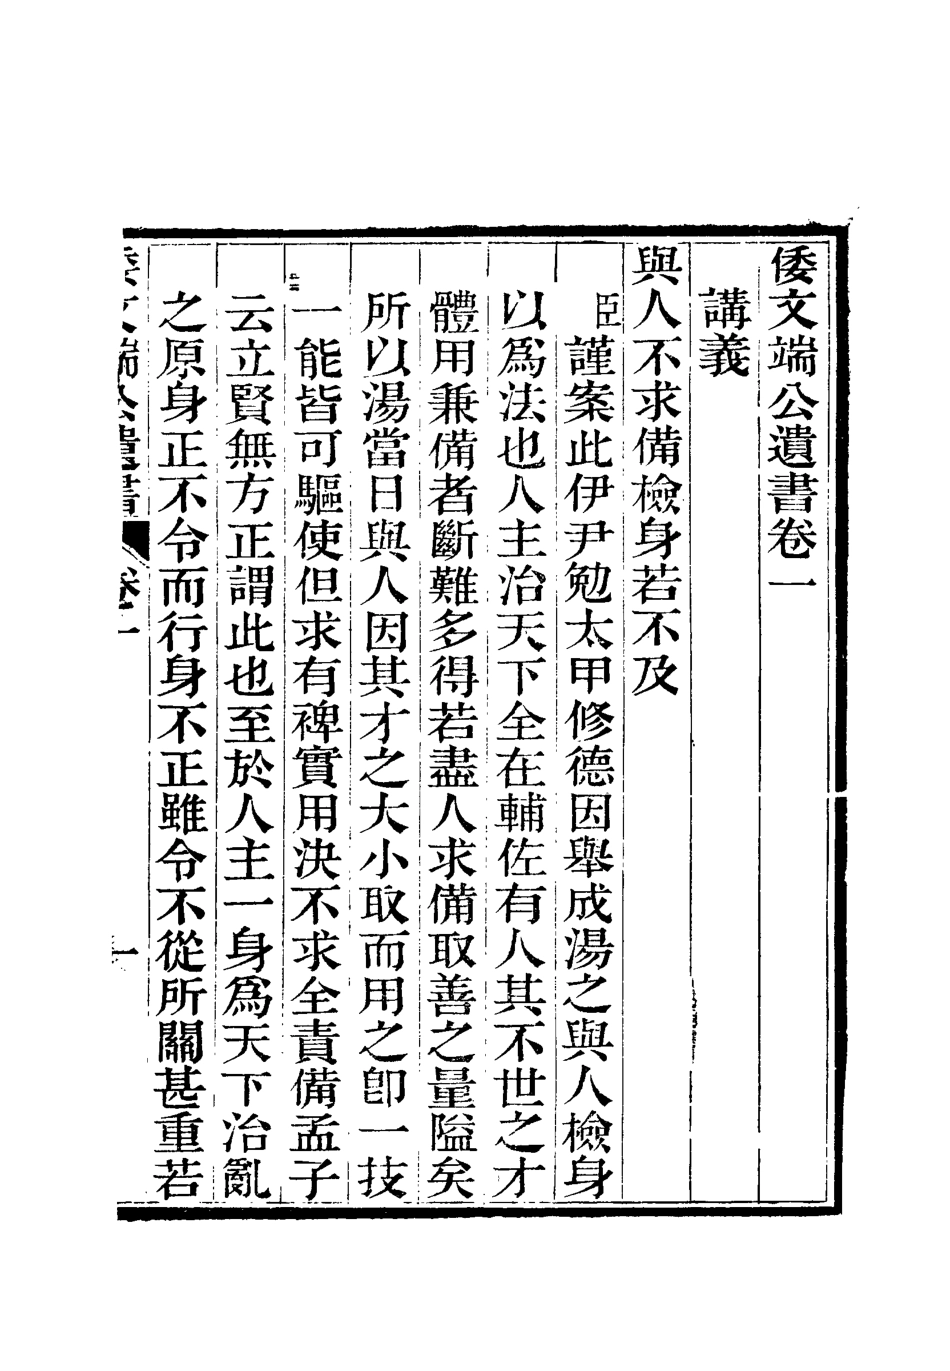 倭文端公遺書卷一
講義
與人不求備檢身若不及
臣謹案此伊尹勉太甲修德因舉成湯之與人檢身
以爲法也人主治天下全在輔佐有人其不世之才
體用兼備者斷難多得若盡人求備取善之量隘矣
所以湯當日與人因其才之大小取而用之卽一技
一能皆可驅使但求有裨實用決不求全責備孟子
云立賢無方正謂此也至於人主一身爲天下治亂
之原身正不令而行身不正雖令不從所關甚重若
倭文端公遺書 卷一 一